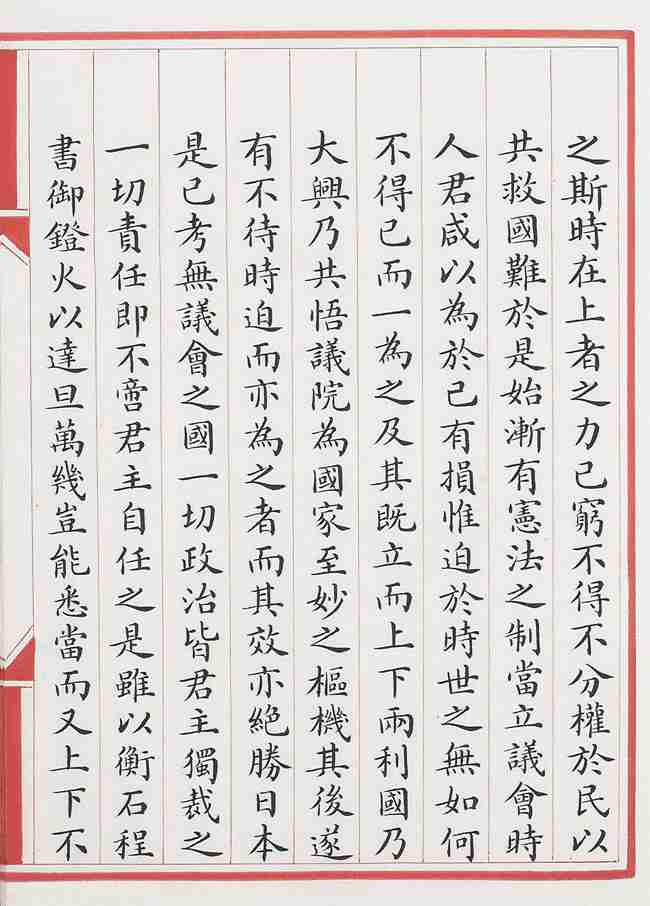 之斯時在上者之力已窮不得不分權於民以
共救國難於是始漸有憲法之制當立議會時
人君咸以為於己有損惟迫於時世之無如何
不得已而一為之及其既立而上下兩利國乃
大興乃共悟議院為國家至妙之樞機其後遂
有不待時迫而亦為之者而其效亦絕勝日本
是已考無議會之國一切政治皆君主獨裁之
一切責任即不啻君主自任之是雖以衡石程
書御鐙火以達旦萬幾豈能悉當而又上下不